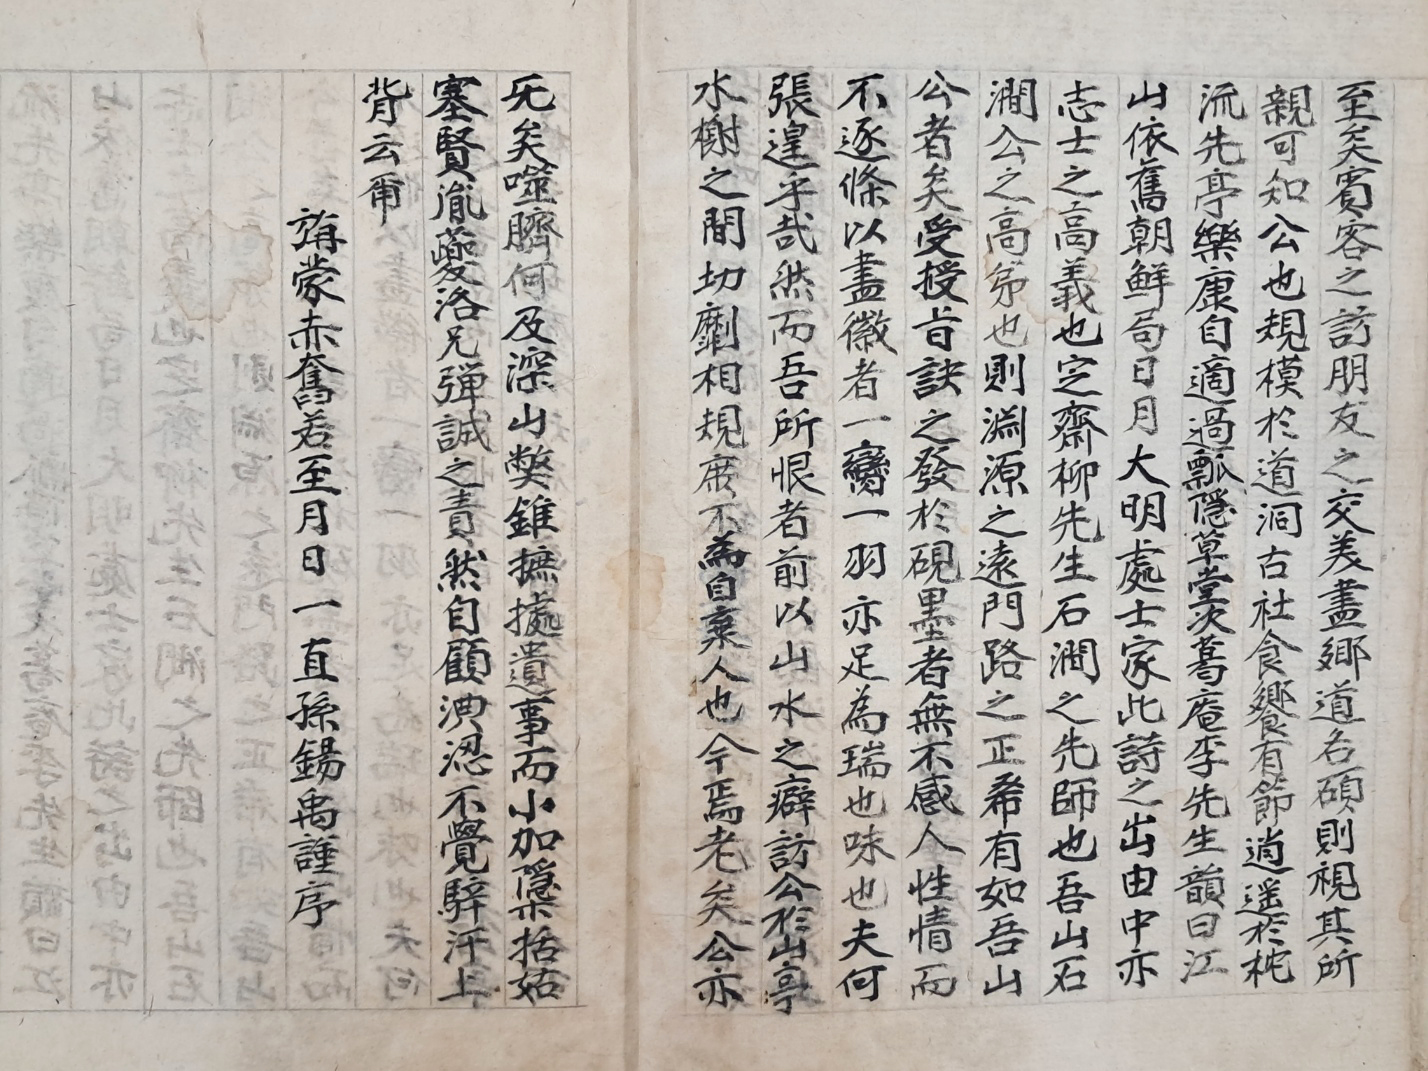 至矣賓客之訪朋友之交美盡鄕道名碩則視其所
親可知公也規模於道洞古社食饗有節逍遥於枕
流先亭樂康自適過瓢隱草堂次葛庵李先生韻曰江
山依舊朝鮮局日月大明處士家此詩之出由中亦
志士之高義也定齋柳先生石澗之先師也吾山石
澗公之高弟也則淵源之遠門路之正希有如吾山
公者矣受授旨訣之發於硯墨者無不感人性情而
不逐條以盡徽者一臠一羽亦足為瑞也味也夫何
張遑乎哉然而吾所恨者前以山水之癖訪公於山亭
水榭之間切劘相規庶不為自棄人也今焉老矣公亦
旡矣噬臍何及深山弊錐摭據遺事而小加隱括姑
塞賢胤夔洛兄彈誠之責然自顧淟涊不覺騂汗上
背云甭
旃蒙赤奮若至月日一直孫錫禹謹序